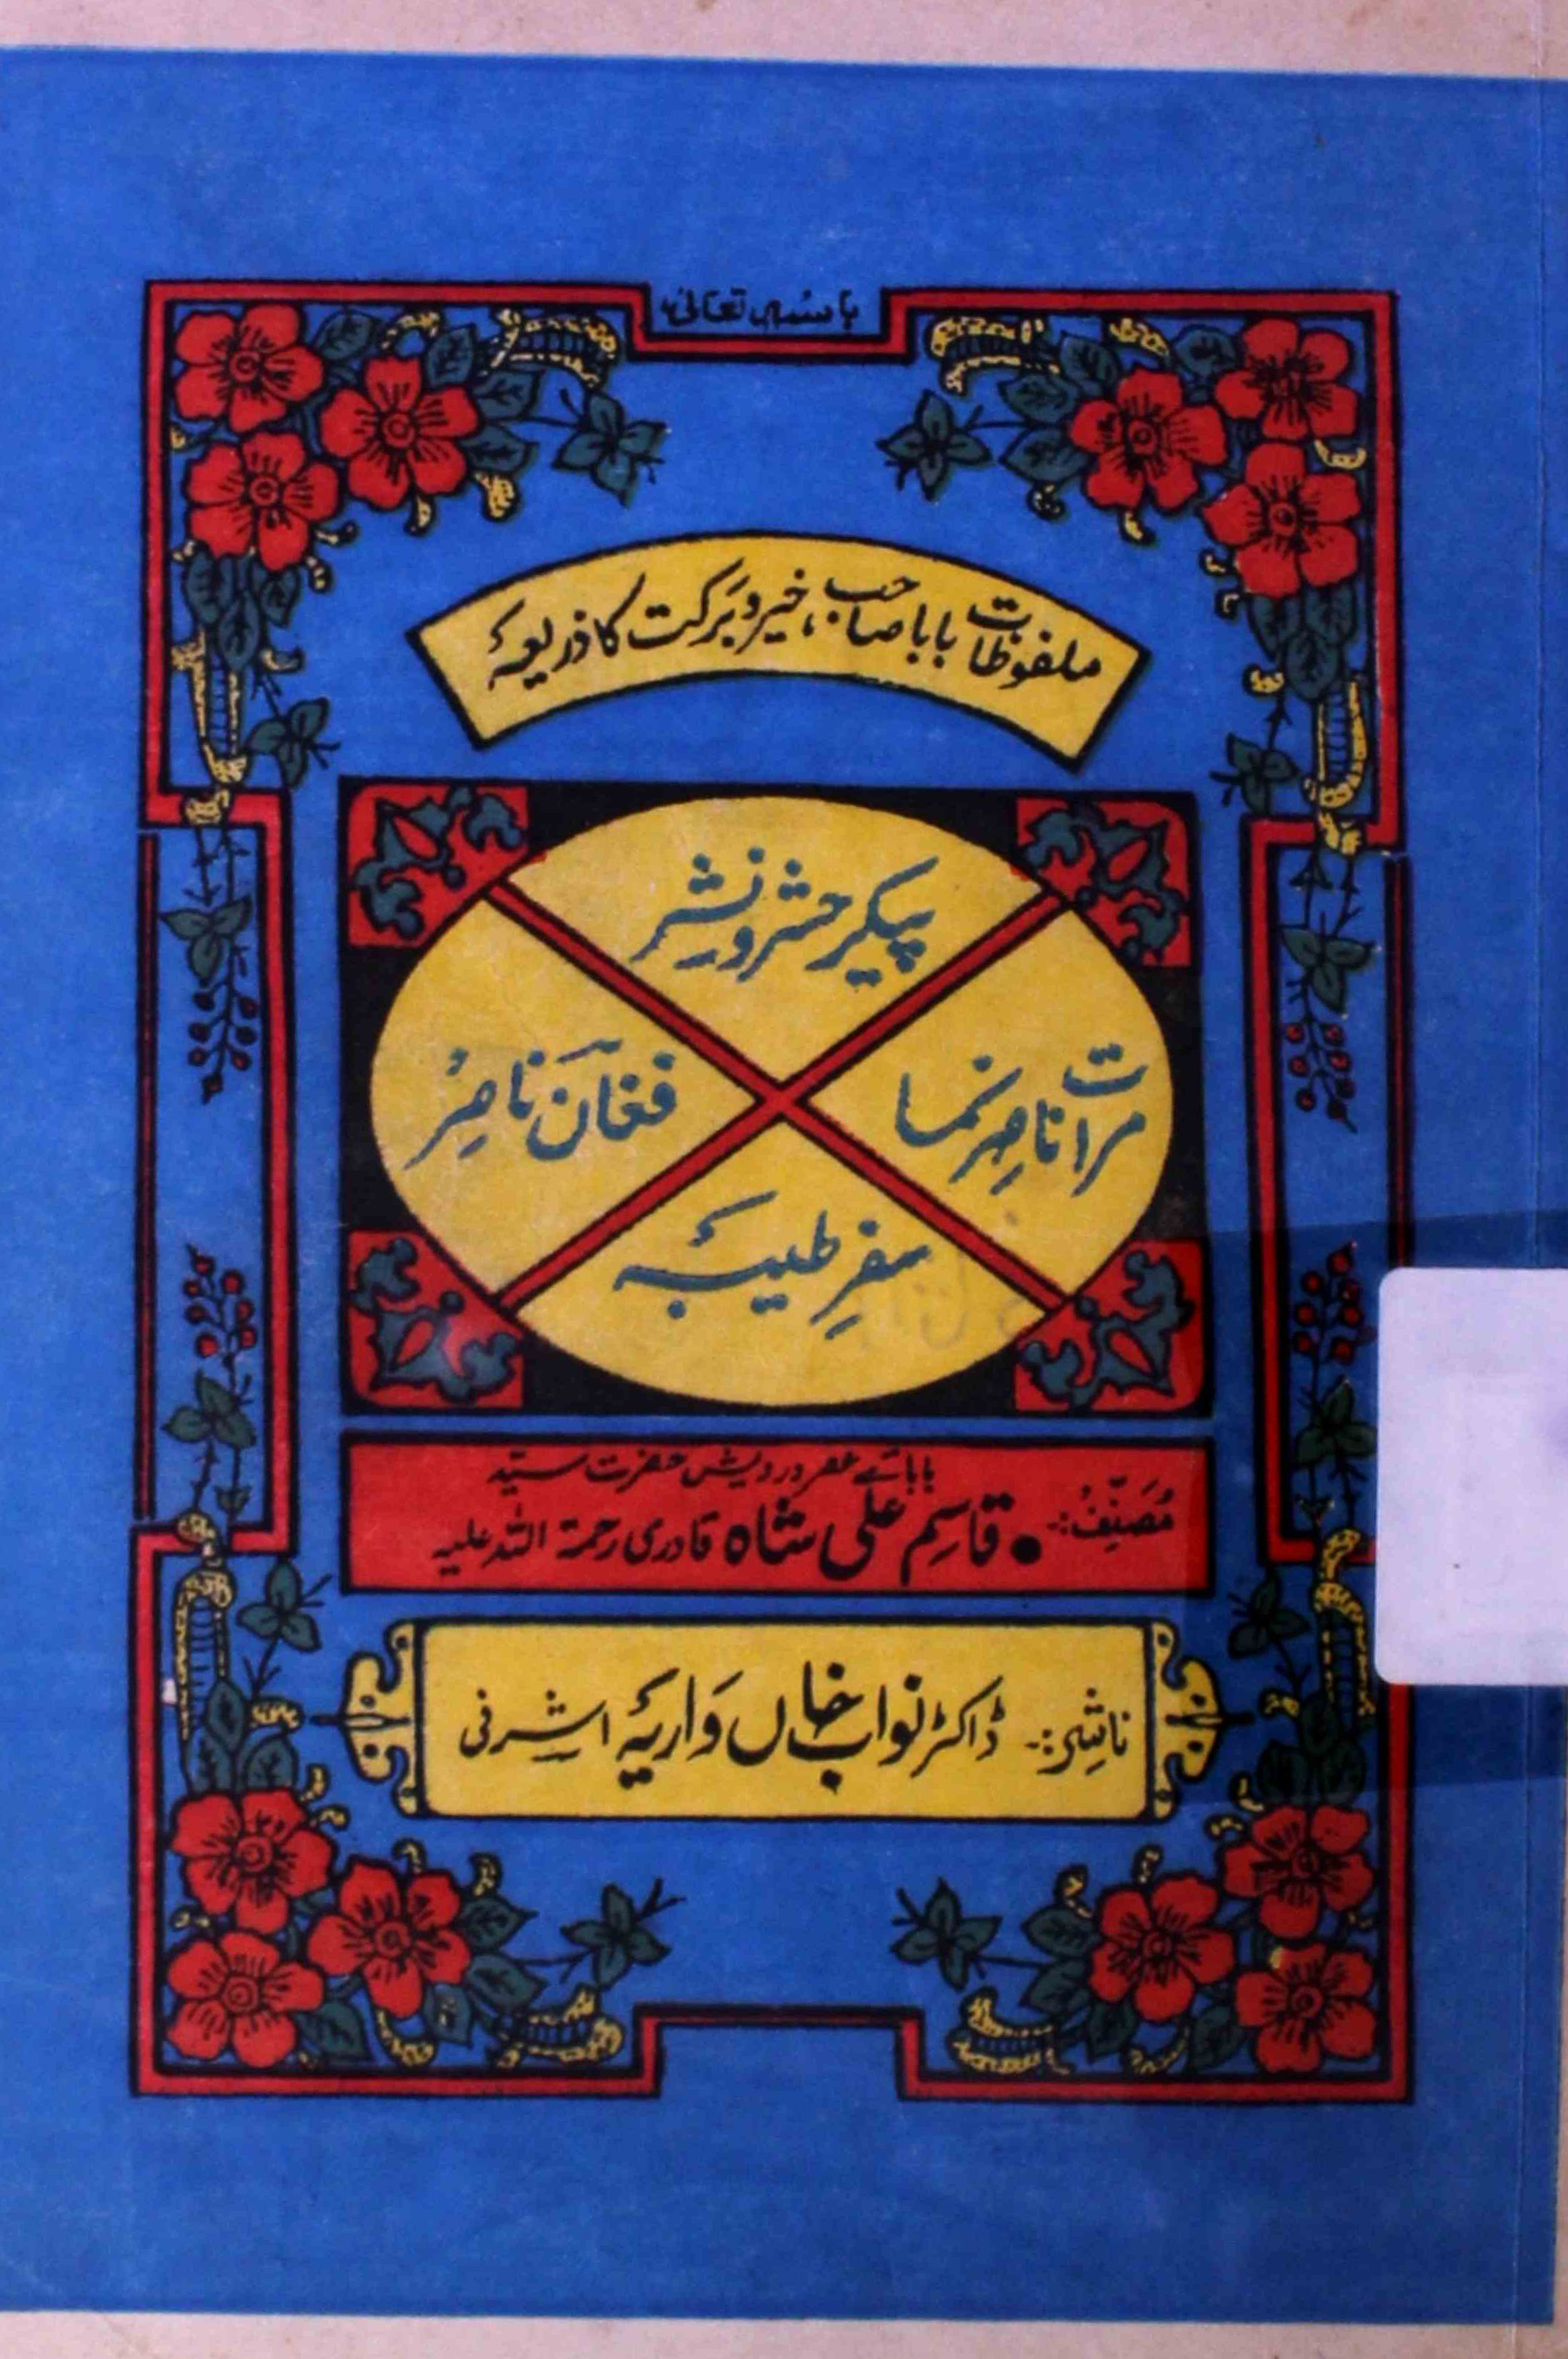 باسمہ تعالیٰ
ملفوظات بابا صاحب، خیر و برکت کا ذریعۂ
پیکیر حشر و نشر
مرات ناصر نما
فغان ناصر
سفرِ طیبۂ
مُصَنِّفُ:۔
بابائے عصر درویش حضرت سیّد
• قاسِم علی شاہ قادری رحمۃ اللہ علیہ
ناشِر:۔ ڈاکٹر نواب خاں وَاریۂ اشرفی